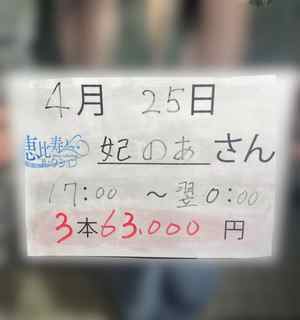 4月 25日
恵比寿 妃のあさん
17:00 ~ 翌0:00
3本63.000円